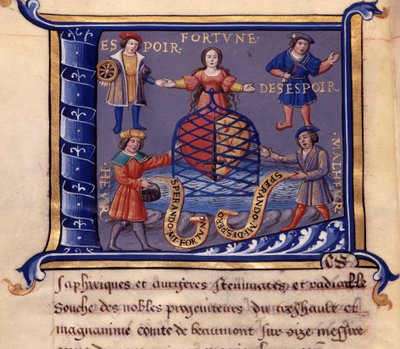 ES POIR
FORTUNE
DESESPOIR
HEVR
MALHEVR
SPERANDO MI FORTVNO
SPERANDO MI DESPERO
saphiriques et auriferes stemmates et radiable
souche des nobles progeniteurs du
magnanime comte de beaumont sur oize messire